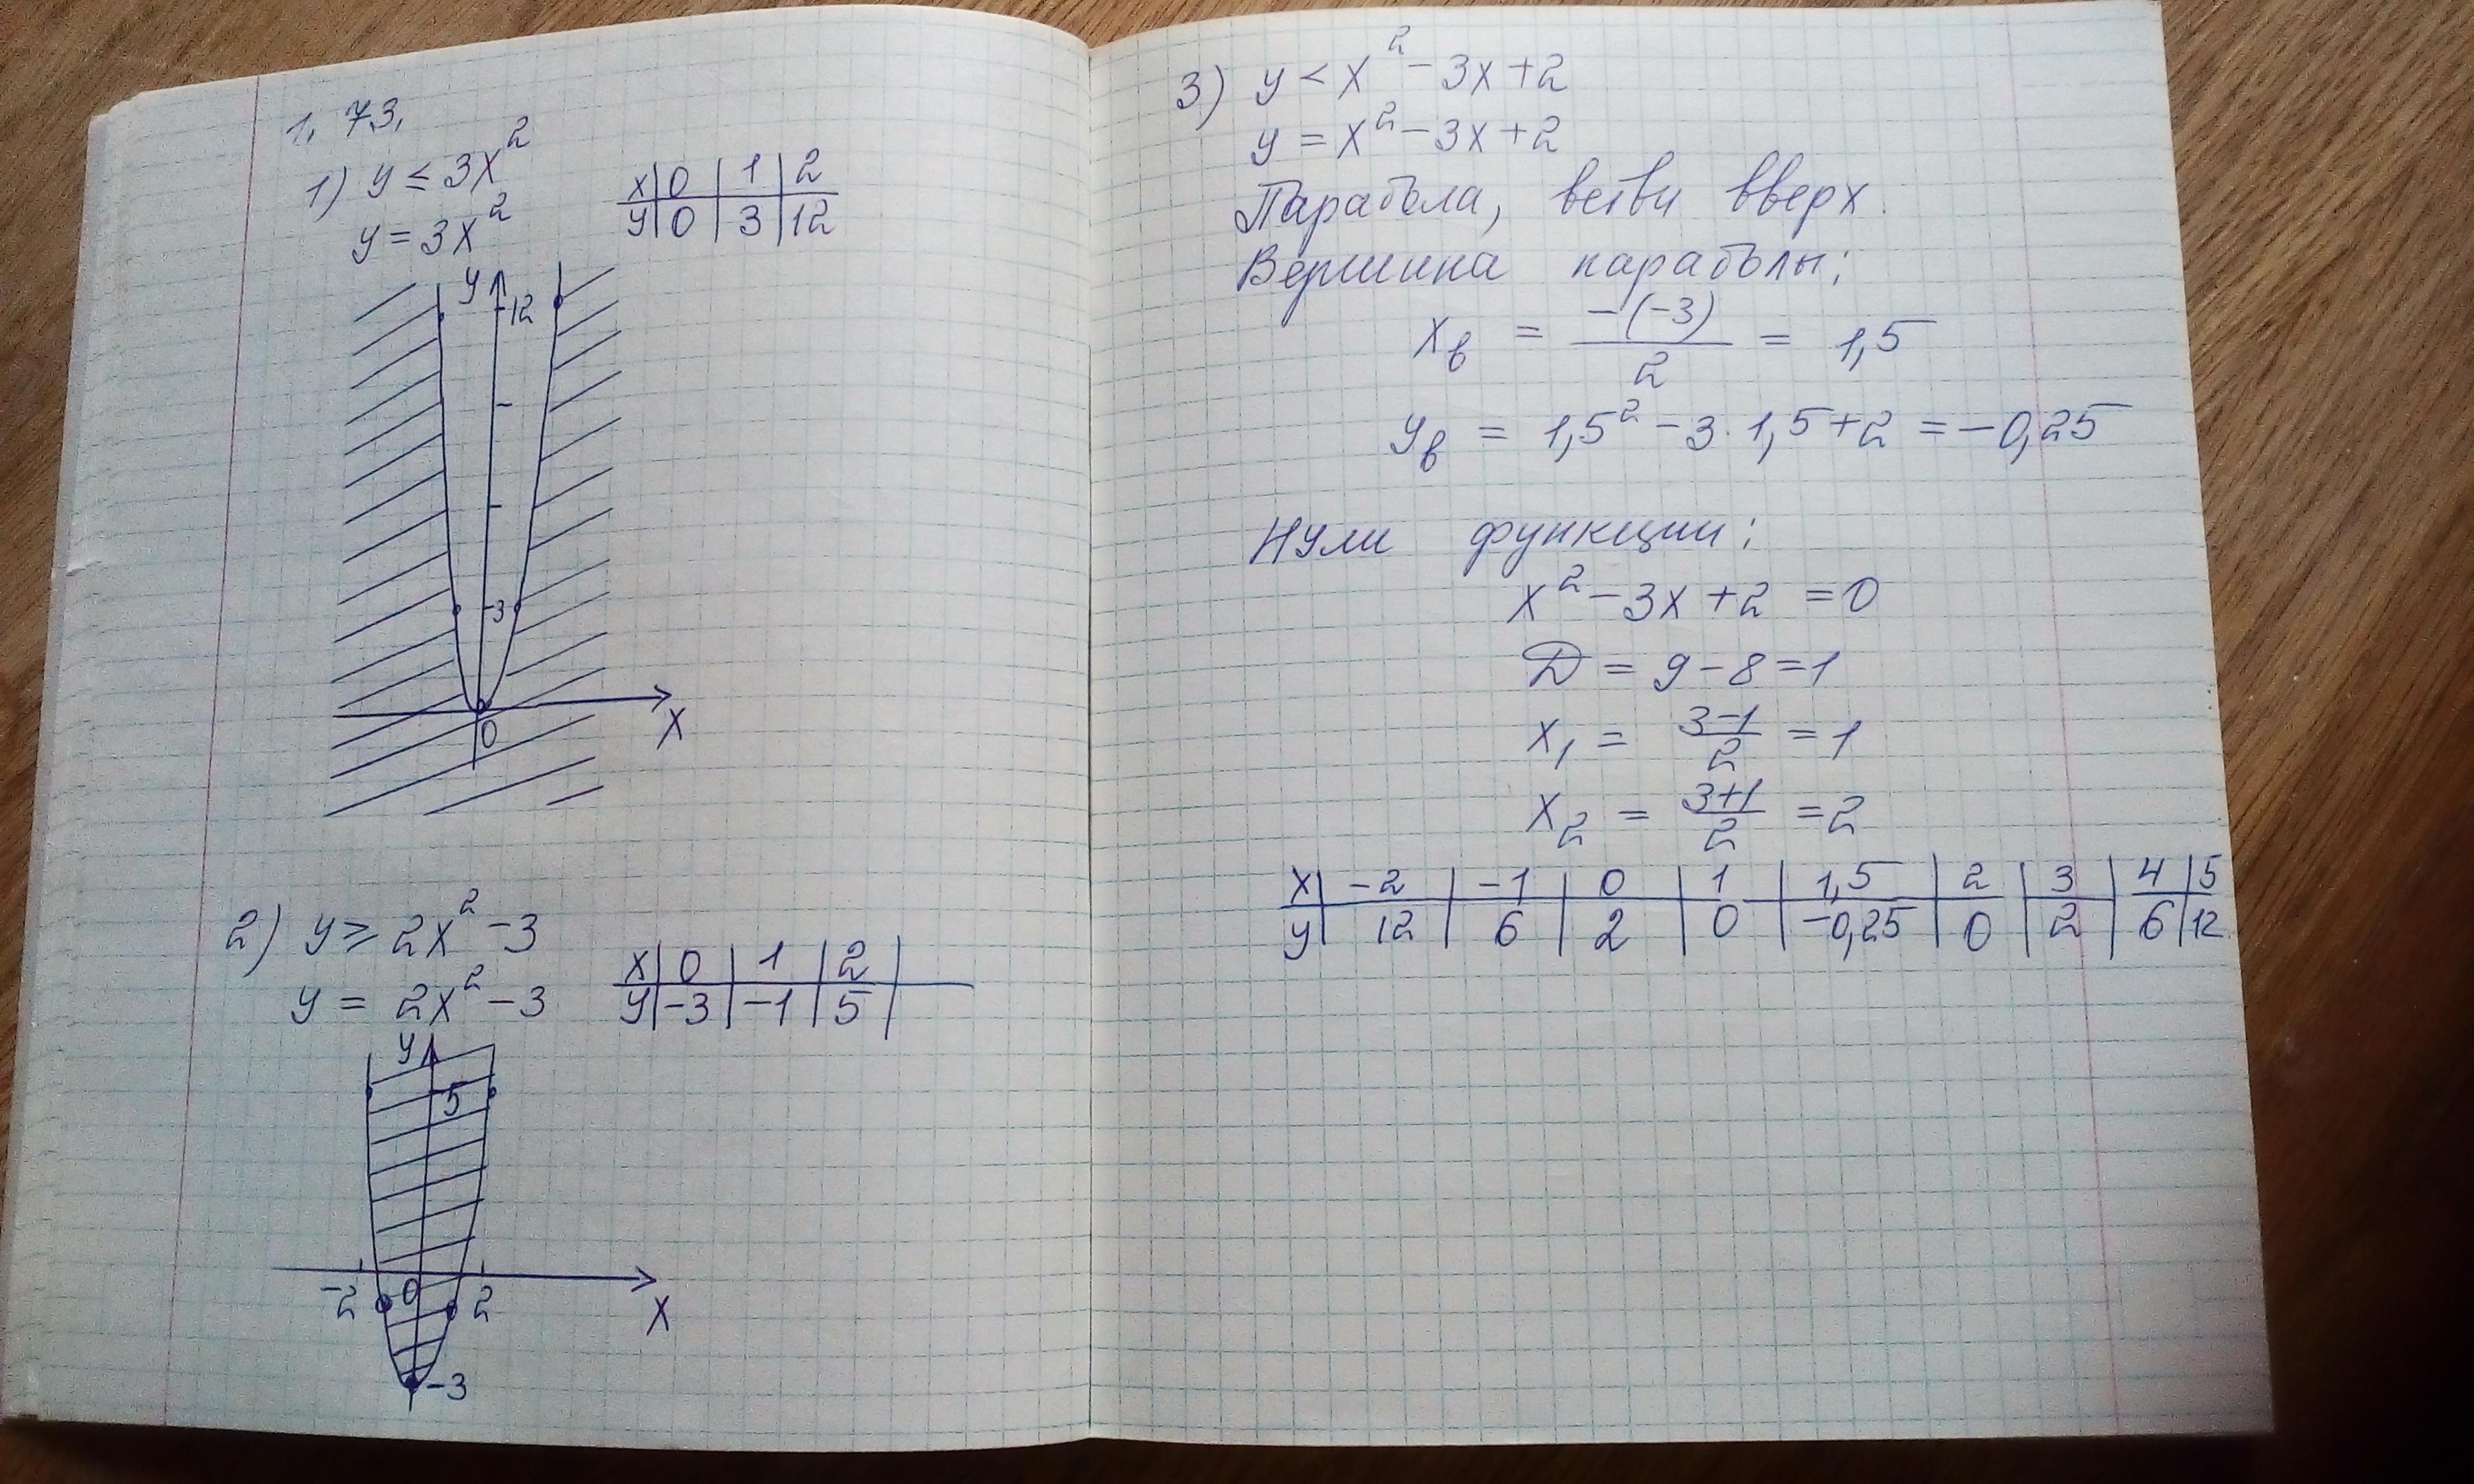 1.73.
1) y ≤ 3x²
y = 3x²
x 0 1 2
y 0 3 12
y
12
3
0
x
2) y ≥ 2x² - 3
y = 2x² - 3
x 0 1 2
y -3 -1 5
y
5
-2 0 2
x
-3
3) y < x² - 3x + 2
y = x² - 3x + 2
Парабола, ветви вверх.
Вершина параболы:
xв = -(-3)/2 = 1,5
yв = 1,5² - 3·1,5 + 2 = -0,25
Нули функции:
x² - 3x + 2 = 0
D = 9 - 8 = 1
x₁ = (3-1)/2 = 1
x₂ = (3+1)/2 = 2
x -2 -1 0 1 1,5 2 3 4 5
y 12 6 2 0 -0,25 0 2 6 12